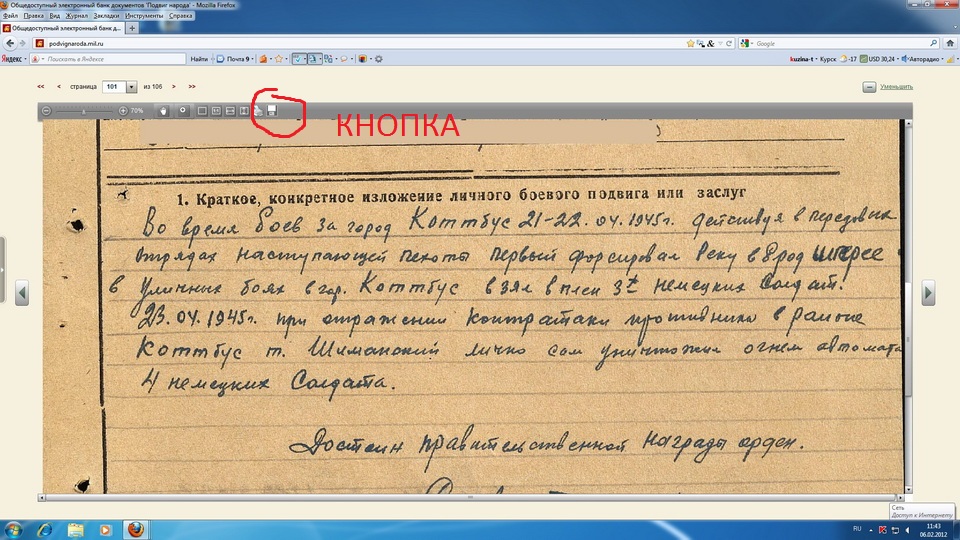 Общедоступный электронный банк документов 'Подвиг народа' - Mozilla Firefox
Файл Правка Вид Журнал Закладки Инструменты Справка
Общедоступный электронный банк д...
podvignaroda.mil.ru
Google
Яндекс
Поискать в Яндексе
Найти
Почта 9
kuzina-t
Курск
-17
USD 30,24
Авторадио
<< < страница 101 из 106 > >>
Уменьшить
70%
КНОПКА
1. Краткое, конкретное изложение личного боевого подвига или заслуг
Во время боев за город Коттбус 21-22.04.1945г. действуя в передовых
отрядах наступающей пехоты первый форсировал Реку в брод Шпрее
в уличных боях в гор. Коттбус взял в плен 3х немецких Солдат.
23.04.1945г. при отражении контратаки противника в районе
Коттбус т. Шиманский лично сам уничтожил огнем автомата
4 немецких Солдата.
Достоин правительственной награды орден.
Сеть
Доступ к Интернету
RU
11:43
06.02.2012